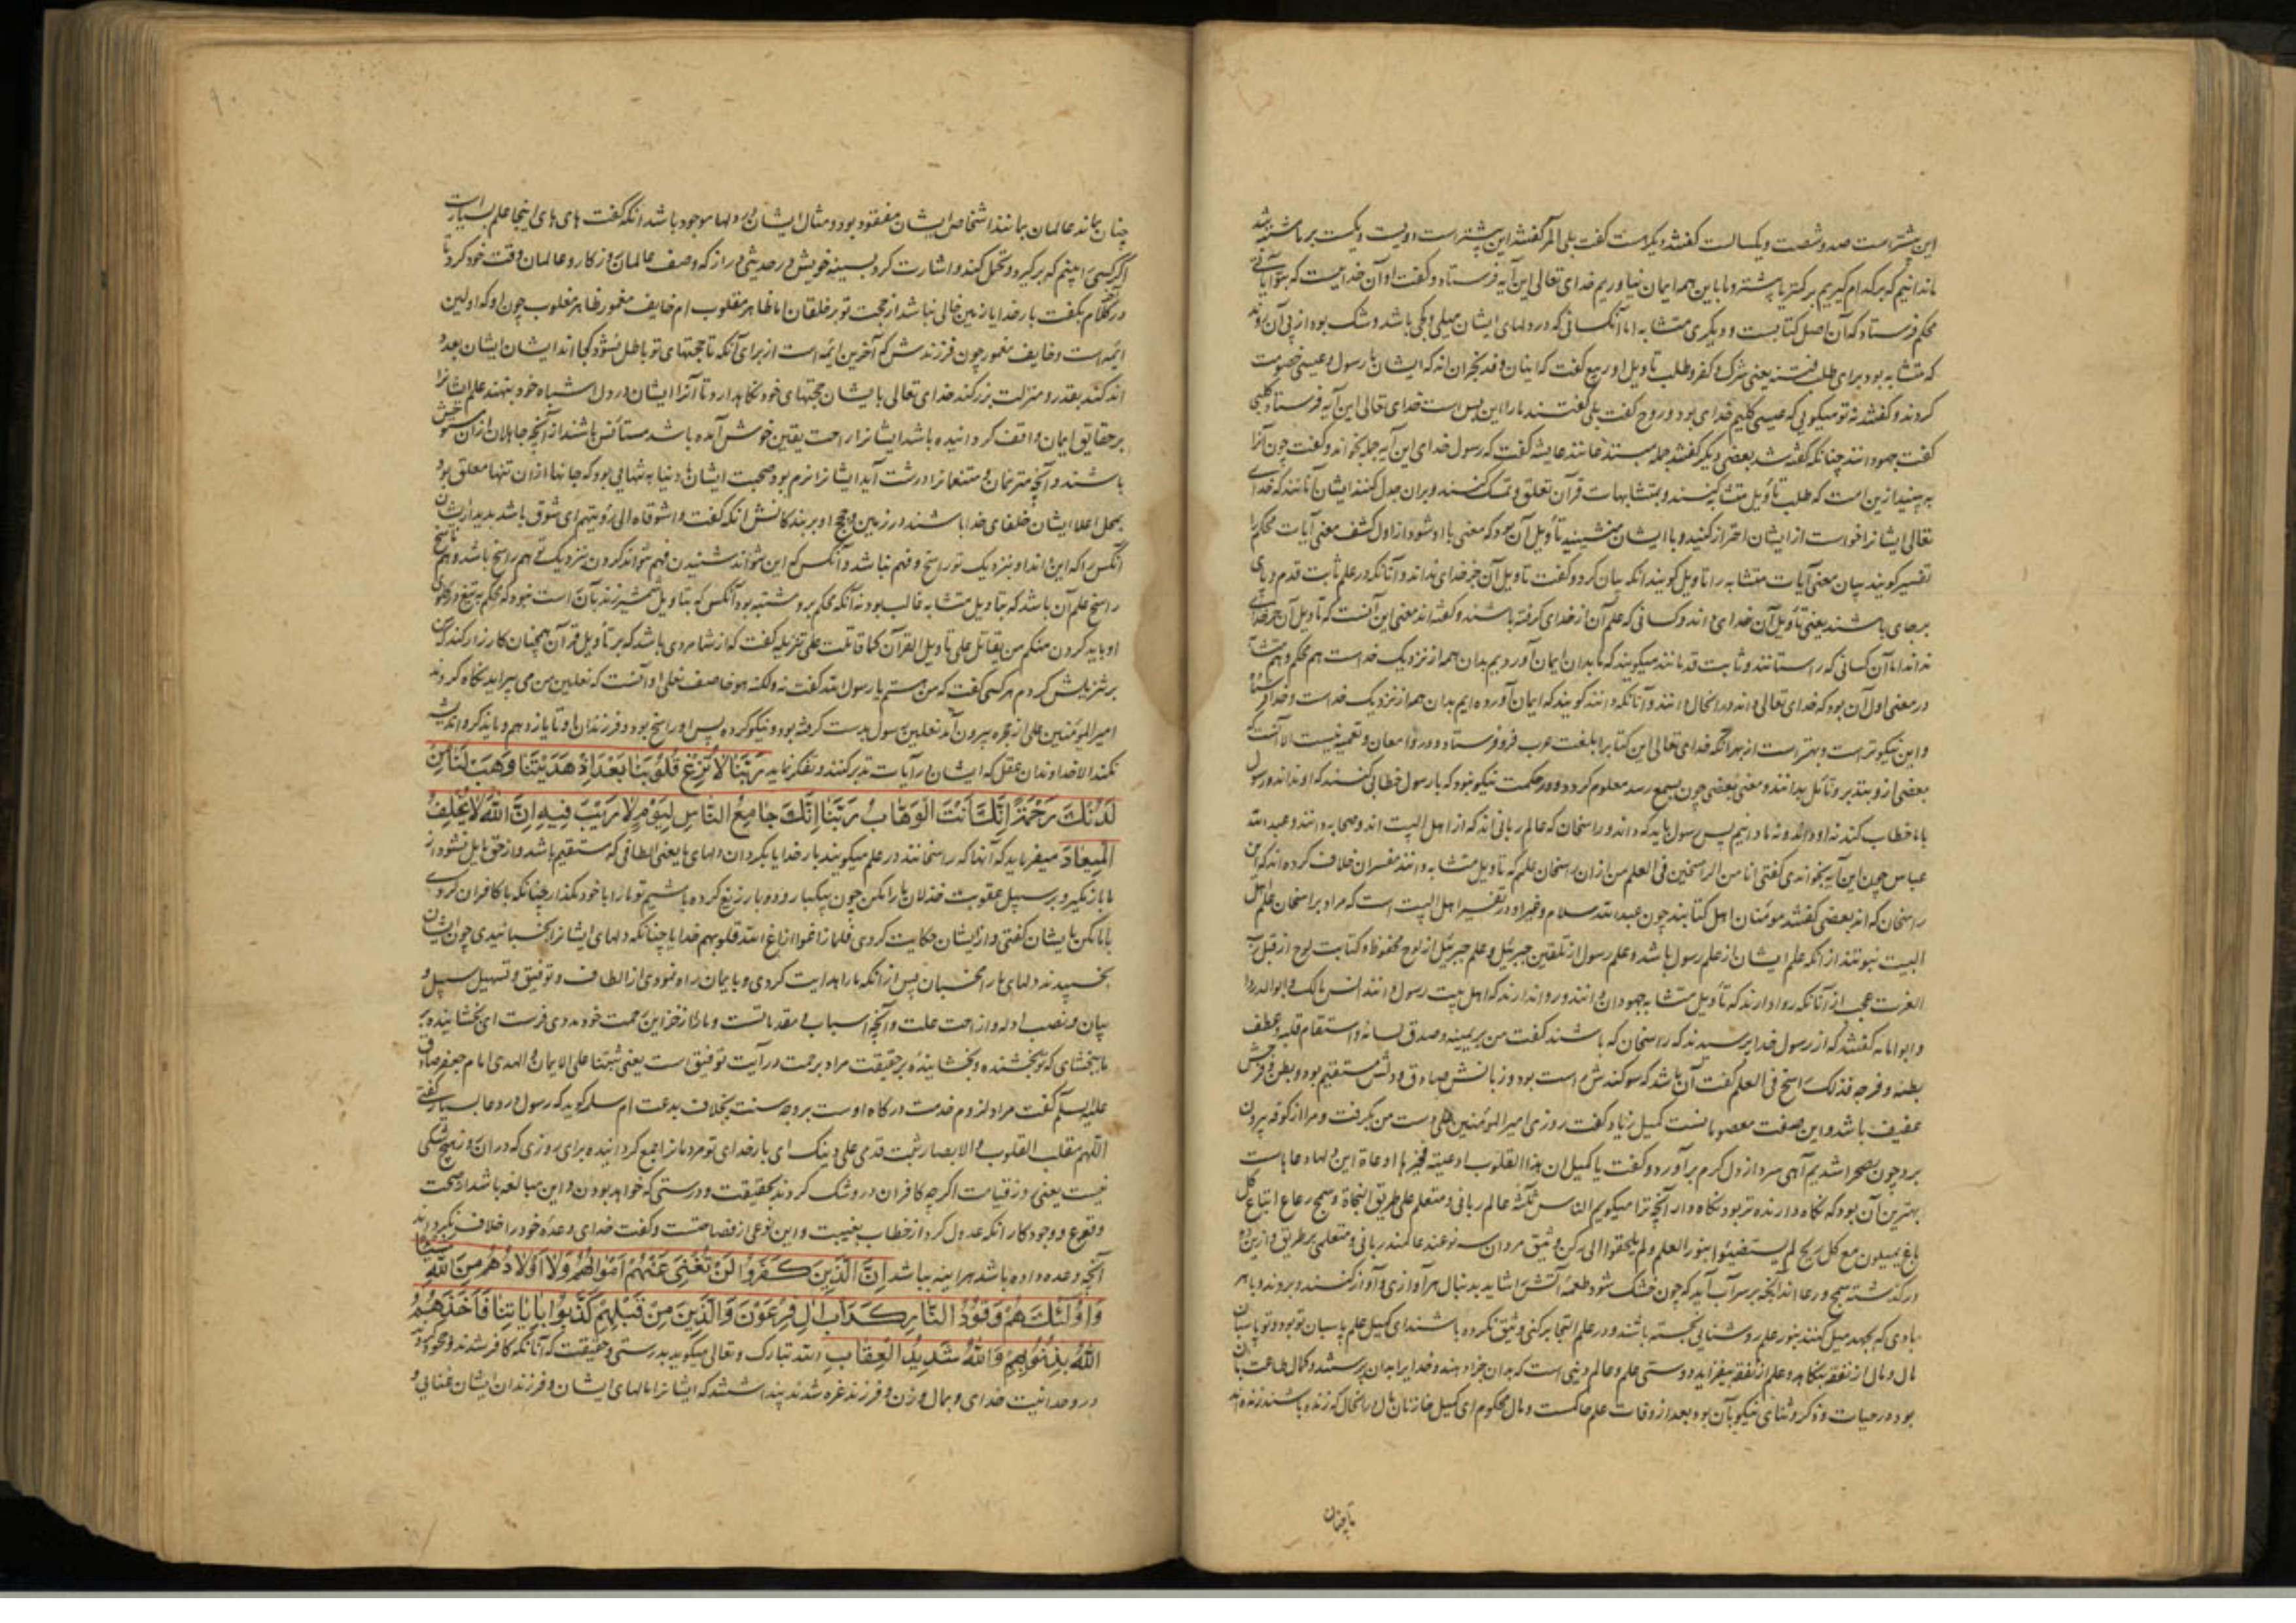 این بیشتر است صد و شصت و یکسالست گفتند دیگر هست گفت بلی المر گفتند این بیشتر است دویست و یکست بر ما مشتبه شد
ما ندانیم که بر کدام گیریم بر کمتر یا بیشتر و ما باین همه ایمان نیاوریم خدای تعالی این آیه فرستاد و گفت او آن خدایست که بتو آیاتی
محکم فرستاد که آن اصل کتابست و دیگری متشابه اما آنکسانی که در دلهای ایشان میلی و کجی باشد و شک بود از پی آن روند
که متشابه بود برای طلب فتنه یعنی شرک و کفر و طلب تاویل او ربیع گفت که اینان وفد نجران اند که ایشان با رسول در عیسی خصومت
کردند و گفتند نه تو میگویی که عیسی کلیم خدای بود و روح گفت بلی گفتند ما را این بس است خدای تعالی این آیه فرستاد کلبی
گفت جهودانند چنانکه گفته شد بعضی دیگر گفتند جمله مبتدعانند عایشه گفت که رسول خدای این آیه جمله بخواند و گفت چون آنرا
به بینید ازین امت که طلب تأویل متشابه کنند و بمتشابهات قرآن تعلق و تمسک کنند و بران جدل کنند ایشان آنانند که خدای
تعالی ایشانرا خواست از ایشان احتراز کنید و با ایشان منشینید تأویل آن بود که معنی با او شود از اول کشف معنی آیات محکم را
تفسیر گویند بیان معنی آیات متشابه را تاویل گویند آنکه بیان کرد و گفت تاویل آن جز خدای نداند و آنانکه در علم ثابت قدم و پای
بر جای باشند یعنی تأویل آن خدای داند و کسانی که علم آن از خدای گرفته باشند و گفته اند معنی این آنست که تأویل آن جز خدای
نداند اما آن کسانی که راستانند و ثابت قدمانند میگویند که ما بدان ایمان آوردیم بدان همه از نزدیک خداست هم محکم و هم متشابه
در معنی اول آن بود که خدای تعالی داند و راسخان دانند و آنانکه دانند گویند که ایمان آورده ایم بدان همه از نزدیک خداست و خدا
و این نیکوتر است و بهتر است از بهر آنکه خدای تعالی این کتاب را بلغت عرب فرو فرستاد و در و معان و تعمیه نیست الا آنست که
بعضی ازو بتدبر و تأمل بدانند و معنی بعضی چون بسمع رسد معلوم گردد و در حکمت نیکو نبود که با رسول خطابی کنند که او نداند و رسول
با ما خطاب کند نه او داند و نه ما دانیم پس رسول باید که داند و راسخان که عالم ربانی اند که از اهل البیت اند و صحابه دانند و عبد الله
عباس چون این آیه بخواندی گفتی انا من الراسخین فی العلم من از ان راسخان علمم که تاویل متشابه دانند مفسران خلاف کرده اند که این
راسخان که اند بعضی گفتند مؤمنان اهل کتابند چون عبد الله سلام و غیر او و در تفسیر اهل البیت است که مراد براسخان علم اهل
البیت نبوتند از آنکه علم ایشان از علم رسول باشد و علم رسول از تلقین جبرئیل و علم جبرئیل از لوح محفوظ و کتابت لوح از قبل رب
العزت عجب از آنانکه روا دارند که تأویل متشابه جهودان دانند و روا ندارند که اهل بیت رسول دانند انس مالک و ابو الدردا
و ابو امامه گفتند که از رسول خدا پرسیدند که راسخان که باشند گفت من بر یمینه و صدق لسانه و استقام قلبه و عف
بطنه و فرجه فذلک راسخ فی العلم گفت آن باشد که سوگندش راست بود و زبانش صادق و دلش مستقیم بود و بطن و فرجش
عفیف باشد و این صفت معصومانست کمیل زیاد گفت روزی امیر المؤمنین علی دست من بگرفت و مرا از کوفه بیرون
برد چون بصحرا شدیم آهی سرد از دل گرم برآورد و گفت یا کمیل ان هذا القلوب اوعیة فخیرها اوعاها این دلها وعاهاست
بهترین آن بود که نگاه دارنده تر بود نگاه دار آنچه ترا میگویم الناس ثلثة عالم ربانی و متعلم علی طریق النجاة و همج رعاع اتباع کل
ناعق یمیلون مع کل ریح لم یستضیئوا بنور العلم و لم یلجئوا الی رکن وثیق مردان سه نوعند عالمند ربانی و متعلمی بر طریق و ازین دو
در گذشته همج و رعاع اند آنچه بر سر آب آید که چون خشک شود طعمه آتش را شاید بدنبال هر آوازی و آواز کنند و بروند و با هر
بادی که بجهد میل کنند بنور علم روشنایی نجسته باشند و در علم التجا برکنی وثیق نکرده باشند ای کمیل علم پاسبان تو بود و تو پاسبان
مال و مال از نفقه بکاهد و علم از نفقه بیفزاید و دوستی علم و عالم دینی است که بدان جزا دهند و خدا را بدان پرستند و کمال طاعت بآن
بود در حیات و ذکر و ثنای نیکو بآن بود بعد از وفات علم حاکمست و مال محکوم ای کمیل خازنان مال در انحال که زنده باشند زنده اند
تا چنان
چنان بماند عالمان بمانند اشخاص ایشان مفقود بود و مثال ایشان در دلها موجود باشد آنکه گفت های های اینجا علم بسیار است
اگر کسی را بینم که برگیرد و تحمل کند و اشارت کرد بسینه خویش در حدیثی دراز که وصف عالمان و زکار و عالمان وقت خود کرد تا
در آخر کلام بگفت بار خدایا زمین خالی نباشد از حجت تو بر خلقان اما ظاهر مقلوب ام خایف مغمور ظاهر مغلوب چون او که اولین
ایمه است و خایف مغمور چون فرزندش که آخرین ایمه است از برای آنکه تا حجتهای تو باطل نشود کجا اند ایشان ایشان بعدد
اندکند بقدر و منزلت بزرگند خدای تعالی بایشان حجتهای خود نگاهدارد تا آنرا ایشان در دل اشباه خود بنهند علم ایشانرا
بر حقایق ایمان واقف گردانیده باشد ایشانرا راحت یقین خوش آمده باشد مستأنس باشند از آنچه جاهلان از ان مستوحش
باشند و آنچه مترفان و متنعمانرا درشت آید ایشانرا نرم بود صحبت ایشان با دنیا به تنهایی بود که جانها از ان تنها معلق بود
بمحل اعلا ایشان خلفای خدا باشند در زمین و حجج او بر بندگانش آنکه گفت وا شوقاه الی رؤیتهم ای شوق باشد بدیدار ایشان
آنکس را که این اند او بنزدیک تو راسخ و فهم نباشد و آنکس که این نتواند شنیدن فهم نتواند کردن بنزدیک تو هم راسخ باشد و هم ناسخ
راسخ علم آن باشد که بتاویل متشابه غالب بود نه آنکه محکم برو مشتبه بود آنکس که بتاویل شمشیر زند بآن است نبود که محکم به تیغ در گردن
او باید کردن منکم من یقاتل علی تاویل القرآن کما قاتلت علی تنزیله گفت که از شما مردی باشد که بر تأویل قرآن همچنان کارزار کند که من
بر تنزیلش کردم هر کسی گفت که من هستم یا رسول الله گفت نه ولکنه هو خاصف نعلی او آنست که نعلین من می پیراید نگاه کردند
امیر المؤمنین علی از حجره بیرون آمد نعلین رسول بدست گرفته بود و نیکو کرده پس او راسخ بود و فرزندان او تا یازدهم و یاد نکرد و اندیشه
نکنند الا خداوندان عقل که ایشان در آیات تدبر کنند و تفکر نمایند رَبَّنَا لَا تُزِغْ قُلُوبَنَا بَعْدَ اِذْ هَدَیْتَنَا وَهَبْ لَنَا مِنْ
لَدُنْكَ رَحْمَةً اِنَّكَ اَنْتَ الْوَهَّابُ رَبَّنَا اِنَّكَ جَامِعُ النَّاسِ لِیَوْمٍ لَا رَیْبَ فِیهِ اِنَّ اللّٰهَ لَا یُخْلِفُ
الْمِیعَادَ میفرماید که آنها که راسخانند در علم میگویند بار خدایا بگردان دلهای ما یعنی الطافی که مستقیم باشد و از حق مایل نشود از
ما باز مگیر و بر سبیل عقوبت خذلان ما را مکن چون یکبار و دو بار زیغ کرده باشیم تو ما را با خود مگذار چنانکه با کافران کردی
با ما مکن بایشان گفتی و از ایشان حکایت کردی فلما زاغوا ازاغ الله قلوبهم خدایا چنانکه دلهای ایشانرا بخسبانیدی چون ایشان
بخسپیدند دلهای ما را مخسبان پس از آنکه ما را هدایت کردی و بایمان راه نمودی از الطاف و توفیق و تسهیل سبیل و
بیان و نصب ادله و ازاحت علت و آنچه اسباب و مقدماتست و ما را از خزاین رحمت خود مددی فرست ای بخشاینده
ما بخشای که تو بخشنده و بخشاینده بر حقیقت مراد برحمت در آیت توفیق است یعنی ثبتنا علی الایمان و الهدی امام جعفر صادق
علیه السلم گفت مراد لزوم خدمت درگاه اوست بر وجه سنت بخلاف بدعت ام سلمه گوید که رسول در دعا بسیار گفتی
اللهم مقلب القلوب و الابصار ثبت قدمی علی دینک ای بار خدای تو مردمانرا جمع گردانیده برای روزی که در ان روز هیچ شکی
نیست یعنی روز قیامت اگر چه کافران در و شک کردند بحقیقت و درستی که خواهد بودن و این مبالغه باشد از صحت
وقوع و وجود کار آنکه عدول کرد از خطاب بغیبت و این نوعی از فصاحتست و گفت خدای وعده خود را خلاف نگرداند
آنچه وعده داده باشد هر اینه بباشد اِنَّ الَّذِینَ كَفَرُوا لَنْ تُغْنِیَ عَنْهُمْ اَمْوَالُهُمْ وَلَا اَوْلَادُهُمْ مِنَ اللّٰهِ شَیْئًا
وَاُولٰئِكَ هُمْ وَقُودُ النَّارِ كَدَاْبِ اٰلِ فِرْعَوْنَ وَالَّذِینَ مِنْ قَبْلِهِمْ كَذَّبُوا بِاٰیَاتِنَا فَاَخَذَهُمُ
اللّٰهُ بِذُنُوبِهِمْ وَاللّٰهُ شَدِیدُ الْعِقَابِ الله تبارک و تعالی میگوید بدرستی و حقیقت که آنانکه کافر شدند و جحود کردند
در وحدانیت خدای و بمال و زن و فرزند غره شدند پنداشتند که ایشانرا مالهای ایشان و فرزندان ایشان غنایی و